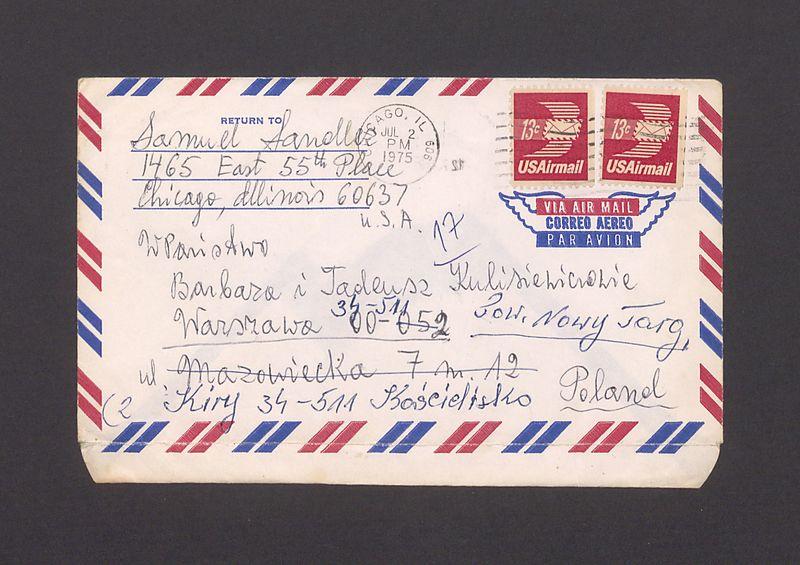 RETURN TO
Samuel Sandler
1465 East 55th Place
Chicago, Illinois 60637
U.S.A.
CHICAGO, IL 606
JUL 2
PM
1975
13c
USAirmail
13c
USAirmail
VIA AIR MAIL
CORREO AEREO
PAR AVION
17
W Państwo
Barbara i Tadeusz Kulisiewiczowie
34-511
Warszawa 00-052 Pow. Nowy Targ,
ul Mazowiecka 7 m. 12
Poland
Kiry 34-511 Kościelisko